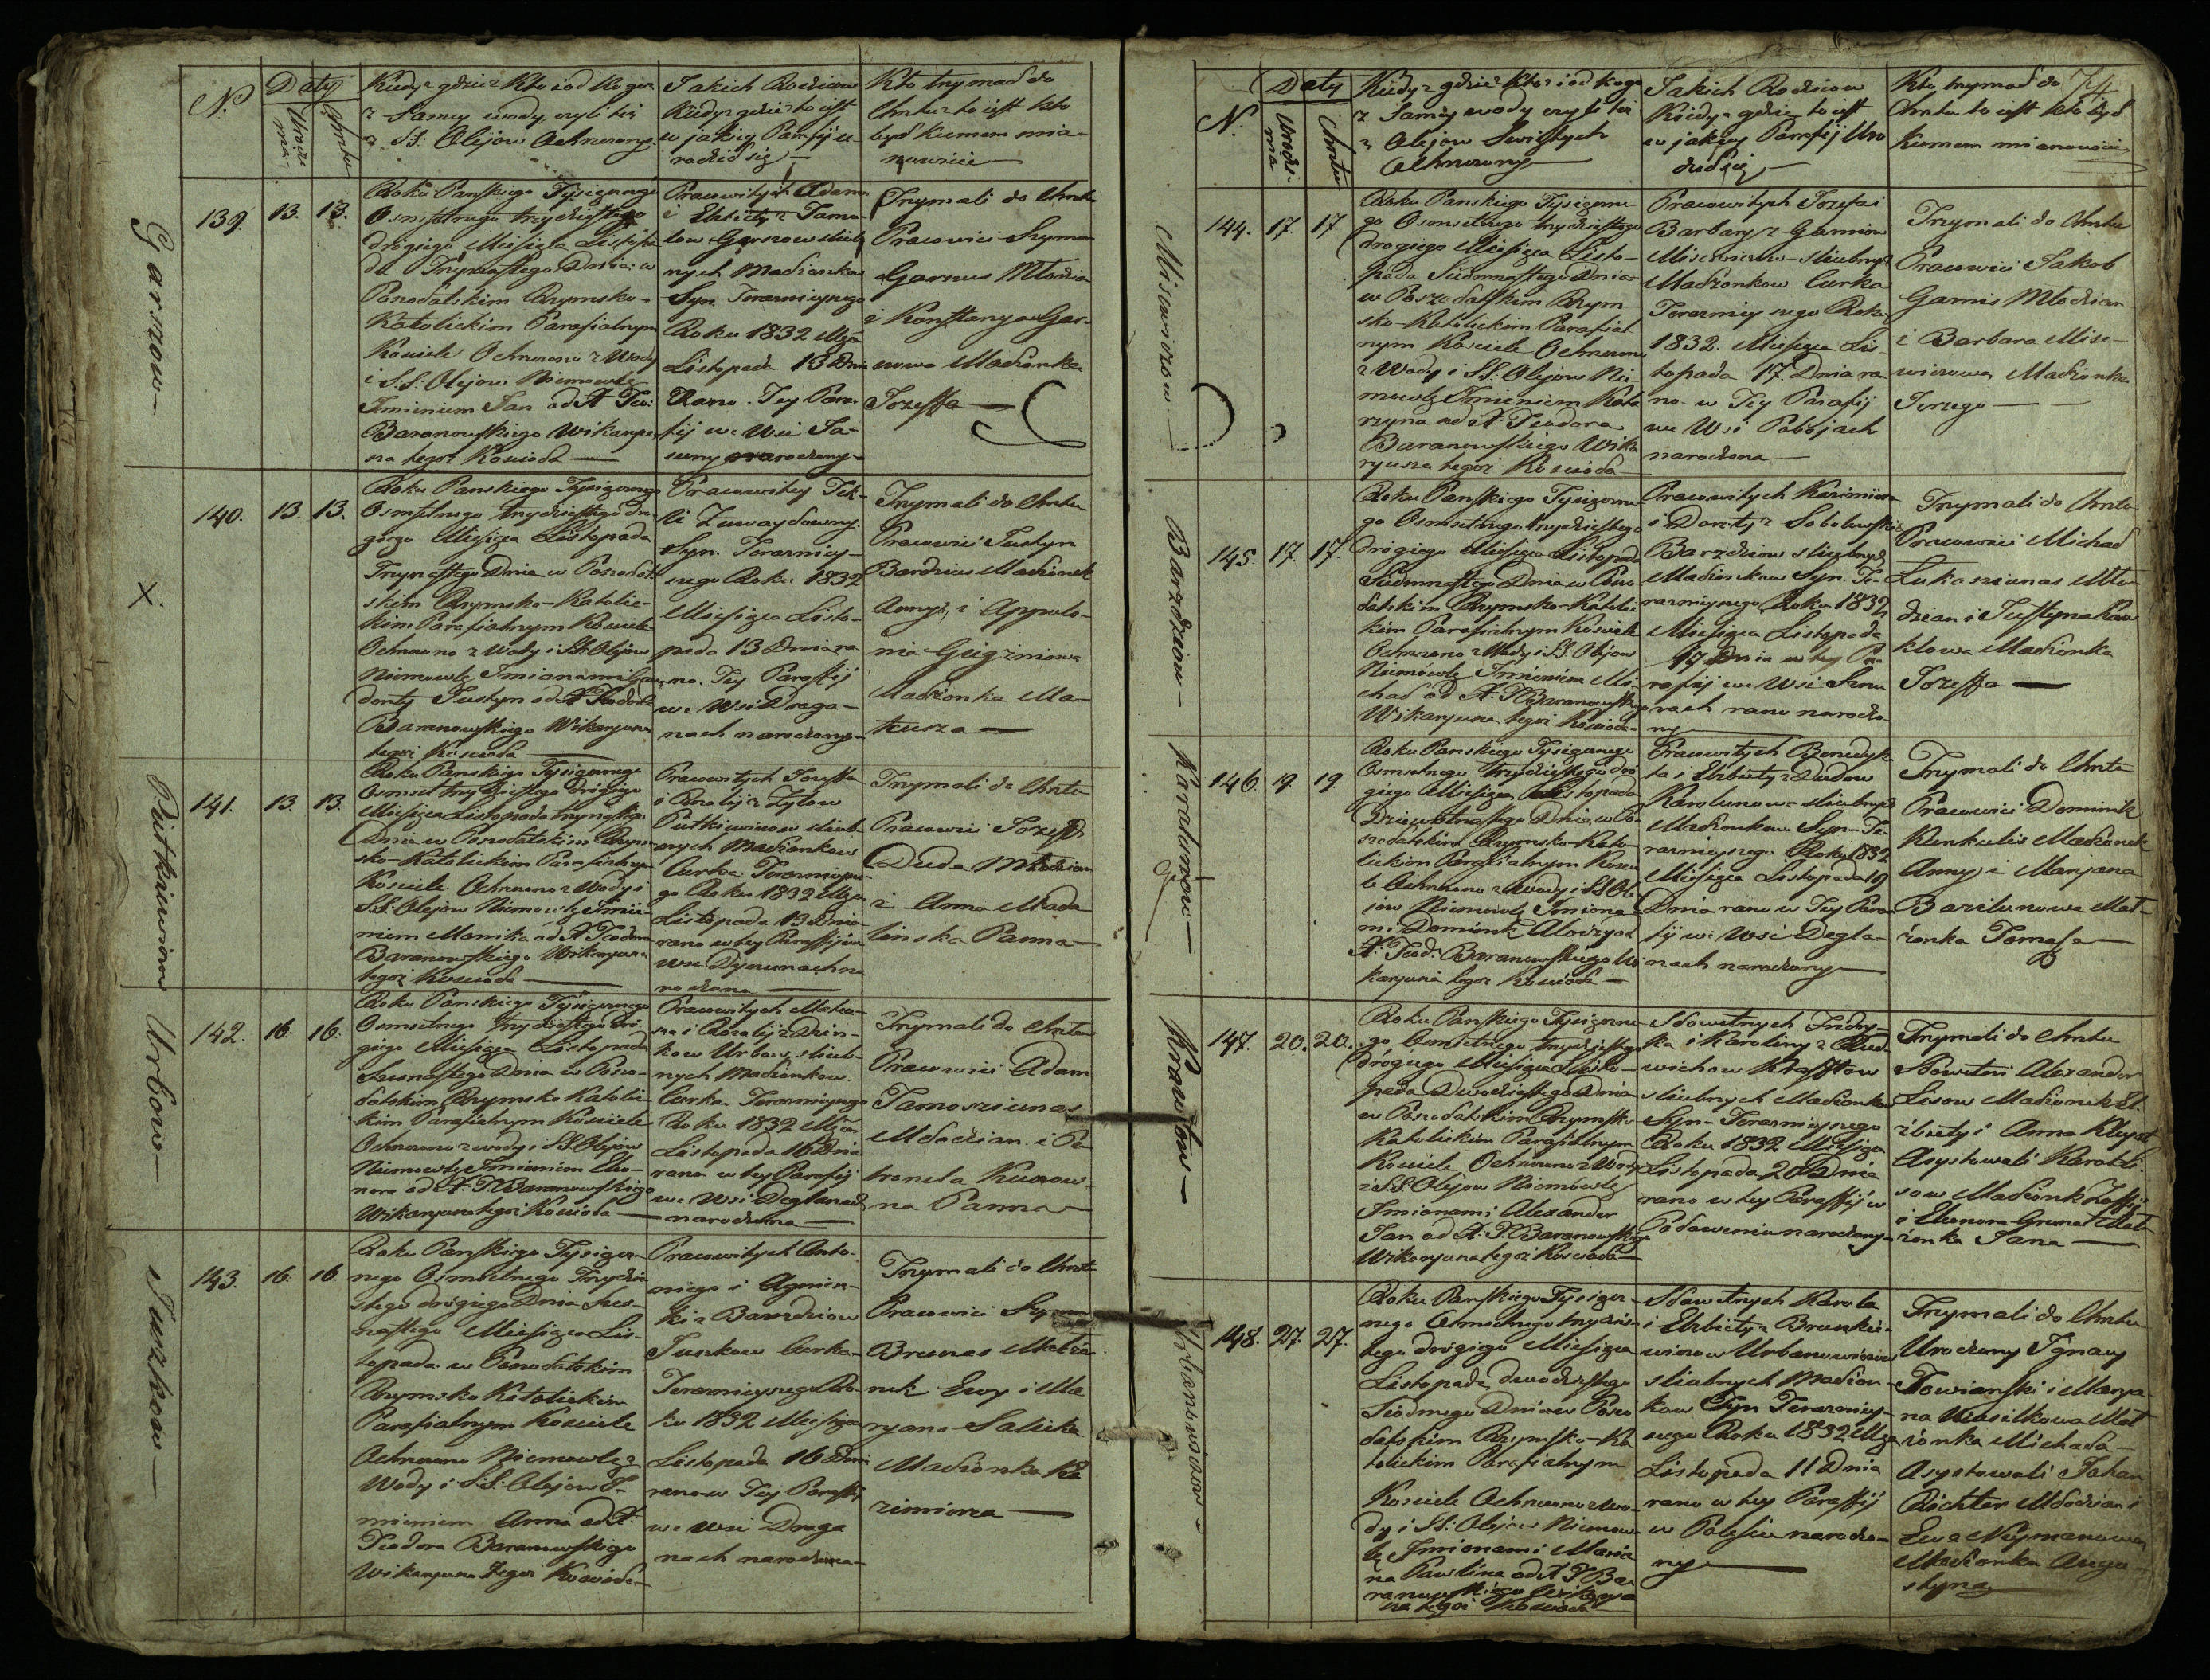 N.
Daty
Urodze
nia
Chrztu
Kiedy z gdzie z Kto i od kogo
z Samey wody czyli też
z SS: Olejow Ochrzczony.
Jakich Rodzicow
Kiedy z gdzie to iest
w jakiey Parafij u-
rodził się —
Kto trzymał do
Chrztu to iest kto
był kumem mia-
nowicie —
Garszow —
139.
13.
13.
Roku Panskiego Tysiącznego
Osmsetnego trzydziestego
drugiego Miesiąca Listopa
da Trzynastego Dnia w
Poszodalskim Rzymsko-
Katolickim Parafialnym
Kosciele Ochrzczono z Wody
i S.S: Olejow Niemowle
Imieniem Jan od X Teo:
Baranowskiego Wikaryu
sza tegoż Kościoła —
Pracowitych Adama
i Elżbiety z Tamo-
low Garszow slieb
nych Małżonkow
Syn Teraznieyszego
Roku 1832 Msca
Listopada 13 Dnia
Rano. Tey Para-
fij we Wsi Ja-
narodzony —
Trzymali do Chrztu
Pracowici Szymon
Garnus Młodzian
i Konstancya Gar-
nowa Małżonka
Jozeffa —
X.
140.
13
13.
Roku Panskiego Tysiącznego
Osmsetnego trzydziestego dru
giego Miesiąca Listopada
Trzynastego Dnia w Poszodal
skim Rzymsko-Katolic-
kim Parafialnym Kosciele
Ochrzczono z Wody i SS. Olejow
Niemowle Imionami
Justyn od X Teodora
Baranowskiego Wikaryusza
tegoż Kościoła —
Pracowitey Tek-
li Zuwaydowny
Syn. Teraźniey-
szego Roku 1832
Miesiąca Listo-
pada 13 Dnia ra
no. Tey Paraffij
we Wsi Draga-
nach narodzony —
Trzymali do Chrztu
Pracowici Justyn
Bardzius Małżonek
Anny, i Appolo-
nia Grigzniowa
Małżonka Ma-
teusza —
Piutkiewiczow
141.
13.
13.
Roku Panskiego Tysiącznego
Osmset trzydziestego drugiego
Miesiąca Listopada trzynastego
Dnia w Poszodalskim Rzym-
sko-Katolickim Parafialnym
Kosciele Ochrzczono z Wody i
S.S. Olejow Niemowle Imie-
niem Monika od X Teodora
Baranowskiego Wikaryusza
tegoż Kościoła —
Pracowitych Jozeffa
i Rozalij z Zylow
Piutkiewiczow slieb-
nych Małżonkow
Curka Teraznieysze-
go Roku 1832 Msca
Listopada 13 Dnia
rano w tey Paraffij we
Wsi Dijownach na
rodzona —
Trzymali do Chrztu
Pracowici Jozeff
Duda Młodzian
i Anna Mada
linska Panna —
Urbow —
142.
16.
16.
Roku Panskiego Tysiącznego
Osmsetnego trzydziestego dru-
giego Miesiąca Listopada
Szesnastego Dnia w Poszo-
dalskim Rzymsko Katolic-
kim Parafialnym Kosciele
Ochrzczono z wody i SS Olejow
Niemowle Imieniem Eleo-
nora od X: T Baranowskiego
Wikaryusza tegoż Kościoła —
Pracowitych Mateu-
sza i Rozalij z Dzin-
kow Urbow slieb-
nych Małżonkow.
Curka Teraznieyszego
Roku 1832 Msca
Listopada 16 Dnia
rano w tey Parafij
we Wsi Deglanach
narodzona —
Trzymali do Chrztu
Pracowici Adam
Tamosziunas
Młodzian i Pe
tronela
na Panna —
Juszkow —
143.
16.
16.
Roku Panskiego Tysiącz-
nego Osmsetnego Trzydzie
stego drugiego Dnia Szes-
nastego Miesiąca Lis-
topada w Poszodalskim
Rzymsko Katolickim
Parafialnym Kosciele
Ochrzczono Niemowle z
Wody i S.S: Olejow I-
mieniem Anna od X.
Teodora Baranowskiego
Wikaryusza tegoż Kościoła —
Pracowitych Anto-
niego i Agniesz-
ki z Barzdziow
Juszkow Curka
Teraznieyszego Ro-
ku 1832 Miesiąca
Listopada 16 Dnia
rano w Tey Paraffij
we Wsi Draga
nach narodzona —
Trzymali do Chrztu
Pracowici
Brunas Małżo-
nek Ewy i Ma
ryana Salicka
Małżonka Ka
zimierza —
74
N.
Daty
Urodze-
nia
Chrztu
Kiedy z gdzie z Kto z i od kogo
z Samey wody czyli też
z Olejow Swiętych
Ochrzczony —
Jakich Rodzicow
Kiedy z gdzie to iest
w jakiey Parafij Uro
dził się —
Kto trzymał do
Chrztu to iest kto był
Kumem mianowicie
Misiewiczow —
144.
17.
17
Roku Panskiego Tysiączne-
go Osmsetnego trzydziestego
drugiego Miesiąca Listo-
pada Siedmnastego Dnia
w Poszodalskim Rzym-
sko-Katolickim Parafial
nym Kosciele Ochrzczono
z Wody i SS: Olejow Nie-
mowle Imieniem Kata
rzyna od X: Teodora
Baranowskiego Wika
ryusza tegoż Kościoła —
Pracowitych Jozefa i
Barbary z Garniow
Misiewiczow slieubnych
Małżonkow Curka
Teraznieyszego Roku
1832. Miesiąca Lis-
topada 17 Dnia ra
no w Tey Parafij
we Wsi Pobojach
narodzona —
Trzymali do Chrztu
Pracowici Jakob
Garnis Młodzian
i Barbara Misie-
wiczowa Małżonka
Jerzego —
Barzdziow —
145
17.
17.
Roku Panskiego Tysiączne-
go Osmsetnego trzydziestego
drugiego Miesiąca Listopada
Siedmnastego Dnia w Poszo
dalskim Rzymsko-Katolic
kim Parafialnym Kosciele
Ochrzczono z Wody i SS: Olejow
Niemowle Imieniem Mi-
chał od X. T Baranowskiego
Wikaryusza tegoż Kościoła —
Pracowitych Kazimierza
i Doroty z Sobolewskich
Barzdziow slieubnych
Małżonkow Syn. Te-
raznieyszego Roku 1832
Miesiąca Listopada
17 Dnia w tey Pa
rafij we Wsi Sznu
rach rano narodzo
ny —
Trzymali do Chrztu
Pracowici Michał
Lukasziunas Mło-
dzian i Justyna Paw
kłowa Małżonka
Jozeffa —
Karalunow —
146.
19
19
Roku Panskiego Tysiącznego
Osmsetnego trzydziestego dru
giego Miesiąca Listopada
Dziewietnastego Dnia w Po-
szodalskim Rzymsko-Kato-
lickim Parafialnym Koscie
le Ochrzczono z wody i SS Ole
jow Niemowle Imiona-
mi Dominik Alowzyas
X: Teod: Baranowskiego Wi
karyusza tegoż Kościoła —
Pracowitych Benedyk
ta i Elzbiety z Dudow
Karolunow slieubnych
Małżonkow Syn-Te-
raznieyszego Roku 1832
Miesiąca Listopada 19
Dnia rano w Tey Para
fij we Wsi Degla-
nach narodzony —
Trzymali do Chrztu
Pracowici Dominik
Kunkulis Małżonek
Anny i Marjana
Barilunowa Mał-
żonka Tomasza —
Kraftow —
147.
20.
20.
Roku Panskiego Tysiączne-
go Osmsetnego trzydziestego
drugiego Miesiąca Listo-
pada Dwudziestego Dnia
w Poszodalskim Rzymsko
Katolickim Parafialnym
Kosciele Ochrzczono z Wody
i S.S. Olejow Niemowle
Imionami Alexander
Jan od X. T. Baranowskiego
Wikaryusza tegoż Kościoła —
Sławetnych Frydry-
ka i Karoliny z
wichow Krafftow
sliebnych Małżonkow
Syn-Teraznieyszego
Roku 1832 Miesiąca
Listopada 20 Dnia
rano w tey Paraffij w
Podaweniu narodzony —
Trzymali do Chrztu
Sławetni Alexander
Lisow Małżonek El-
żbiety i Anna
Asystowali Karol Li
sow Małżonek Zoffij
i Eleonora Grunat Mał
żonka Jana —
Urbanowiczow —
148.
27.
27.
Roku Panskiego Tysiącz-
nego Osmsetnego trzydzies-
tego drugiego Miesiąca
Listopada dwudziestego
Siodmego Dnia w Poszo
dalskim Rzymsko-Ka
tolickim Parafialnym
Kosciele Ochrzczono z Wo-
dy i SS: Olejow Niemow-
le Imionami Maria
na Pawlina od X T Ba
ranowskiego Wikaryu
sza tegoż Kościoła
Sławetnych Karola
i Elzbiety z Brunkie-
wiczow Urbanowiczow
slieubnych Małżon-
kow Syn Teraznie-
szego Roku 1832 Msca
Listopada 11 Dnia
rano w tey Paraffij
w Polesiu narodzo-
ny —
Trzymali do Chrztu
Urodzony Ignacy
Towianski i Marya
na Wasilkowa Mał
żonka Michała —
Asystowali Johan
Richter Młodzian i
Ewa Neymanowa
Małżonka Augu-
styna